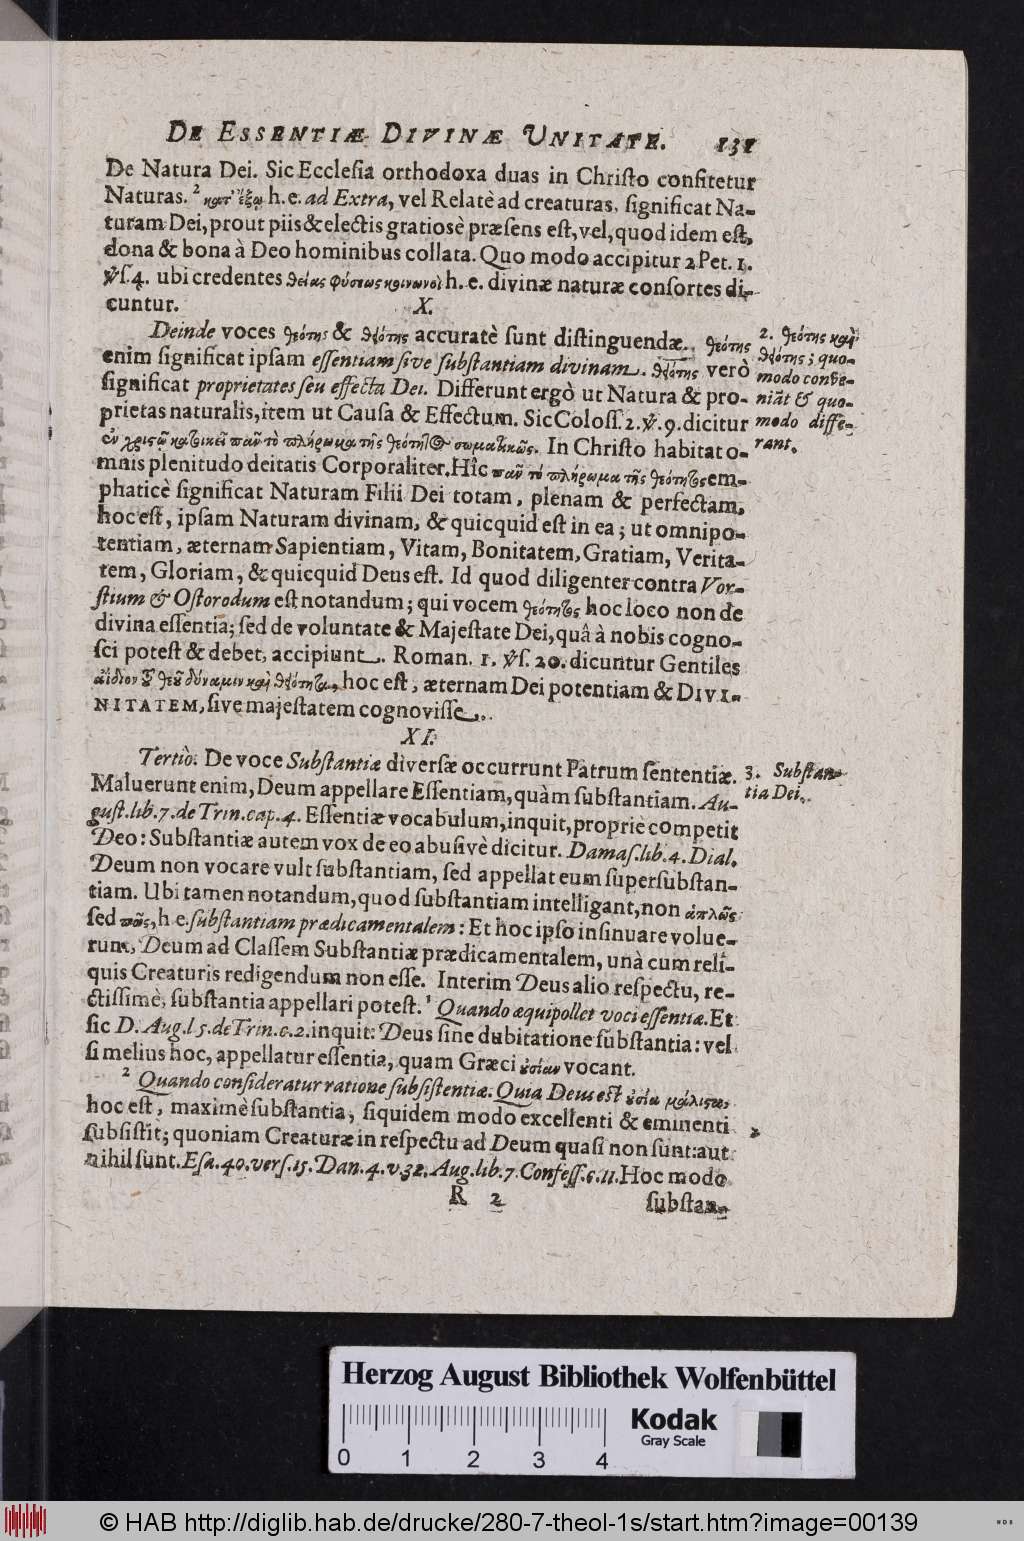 DE ESSENTIÆ DIVINÆ UNITATE. 131
De Natura Dei. Sic Ecclesia orthodoxa duas in Christo confitetur
Naturas. ² κατ' ἔξω h. e. ad Extra, vel Relatè ad creaturas. significat Na-
turam Dei, prout piis & electis gratiosè præsens est, vel, quod idem est,
dona & bona à Deo hominibus collata. Quo modo accipitur 2 Pet. 1.
℣s. 4. ubi credentes θείας φύσεως κοινωνοὶ h. e. divinæ naturæ consortes di-
cuntur.
X.
Deinde voces θεότης & θειότης accuratè sunt distinguendæ. θεότης
enim significat ipsam essentiam sive substantiam divinam. θειότης verò
significat proprietates seu effecta Dei. Differunt ergò ut Natura & pro-
prietas naturalis, item ut Causa & Effectum. Sic Coloss. 2. ℣. 9. dicitur
ἐν χριστῷ κατοικεῖ πᾶν τὸ πλήρωμα τῆς θεότητος σωματικῶς. In Christo habitat o-
mnis plenitudo deitatis Corporaliter. Hîc πᾶν τὸ πλήρωμα τῆς θεότητος em-
phaticè significat Naturam Filii Dei totam, plenam & perfectam,
hoc est, ipsam Naturam divinam, & quicquid est in ea; ut omnipo-
tentiam, æternam Sapientiam, Vitam, Bonitatem, Gratiam, Verita-
tem, Gloriam, & quicquid Deus est. Id quod diligenter contra Vor-
stium & Ostorodum est notandum; qui vocem θεότητος hoc loco non de
divina essentia; sed de voluntate & Majestate Dei, quâ à nobis cogno-
sci potest & debet, accipiunt. Roman. 1. ℣s. 20. dicuntur Gentiles
ἀΐδιον τοῦ θεοῦ δύναμιν καὶ θειότητα, hoc est, æternam Dei potentiam & DIVI-
NITATEM, sive majestatem cognovisse.
2. θεότης καὶ
θειότης; quo-
modo conve-
niāt & quo-
modo diffe-
rant.
XI.
Tertiò. De voce Substantiæ diversæ occurrunt Patrum sententiæ.
Maluerunt enim, Deum appellare Essentiam, quàm substantiam. Au-
gust. lib. 7. de Trin. cap. 4. Essentiæ vocabulum, inquit, propriè competit
Deo: Substantiæ autem vox de eo abusivè dicitur. Damas. lib. 4. Dial.
Deum non vocare vult substantiam, sed appellat eum supersubstan-
tiam. Ubi tamen notandum, quod substantiam intelligant, non ἁπλῶς
sed πῶς, h e. substantiam prædicamentalem: Et hoc ipso insinuare volue-
runt, Deum ad Classem Substantiæ prædicamentalem, unà cum reli-
quis Creaturis redigendum non esse. Interim Deus alio respectu, re-
ctissimè, substantia appellari potest. ¹ Quando æquipollet voci essentiæ. Et
sic D. Aug. l 5. de Trin. c. 2. inquit: Deus sine dubitatione substantia: vel
si melius hoc, appellatur essentia, quam Græci οὐσίαν vocant.
² Quando consideratur ratione subsistentiæ. Quia Deus est οὐσία μάλιστα,
hoc est, maximè substantia, siquidem modo excellenti & eminenti
subsistit; quoniam Creaturæ in respectu ad Deum quasi non sunt: aut
nihil sunt. Esa. 40. vers. 15. Dan. 4. v. 32. Aug. lib. 7. Confess. c. 11. Hoc modo
3. Substan-
tia Dei.
R 2 substan-
Herzog August Bibliothek Wolfenbüttel
Kodak
Gray Scale
0 1 2 3 4
© HAB http://diglib.hab.de/drucke/280-7-theol-1s/start.htm?image=00139